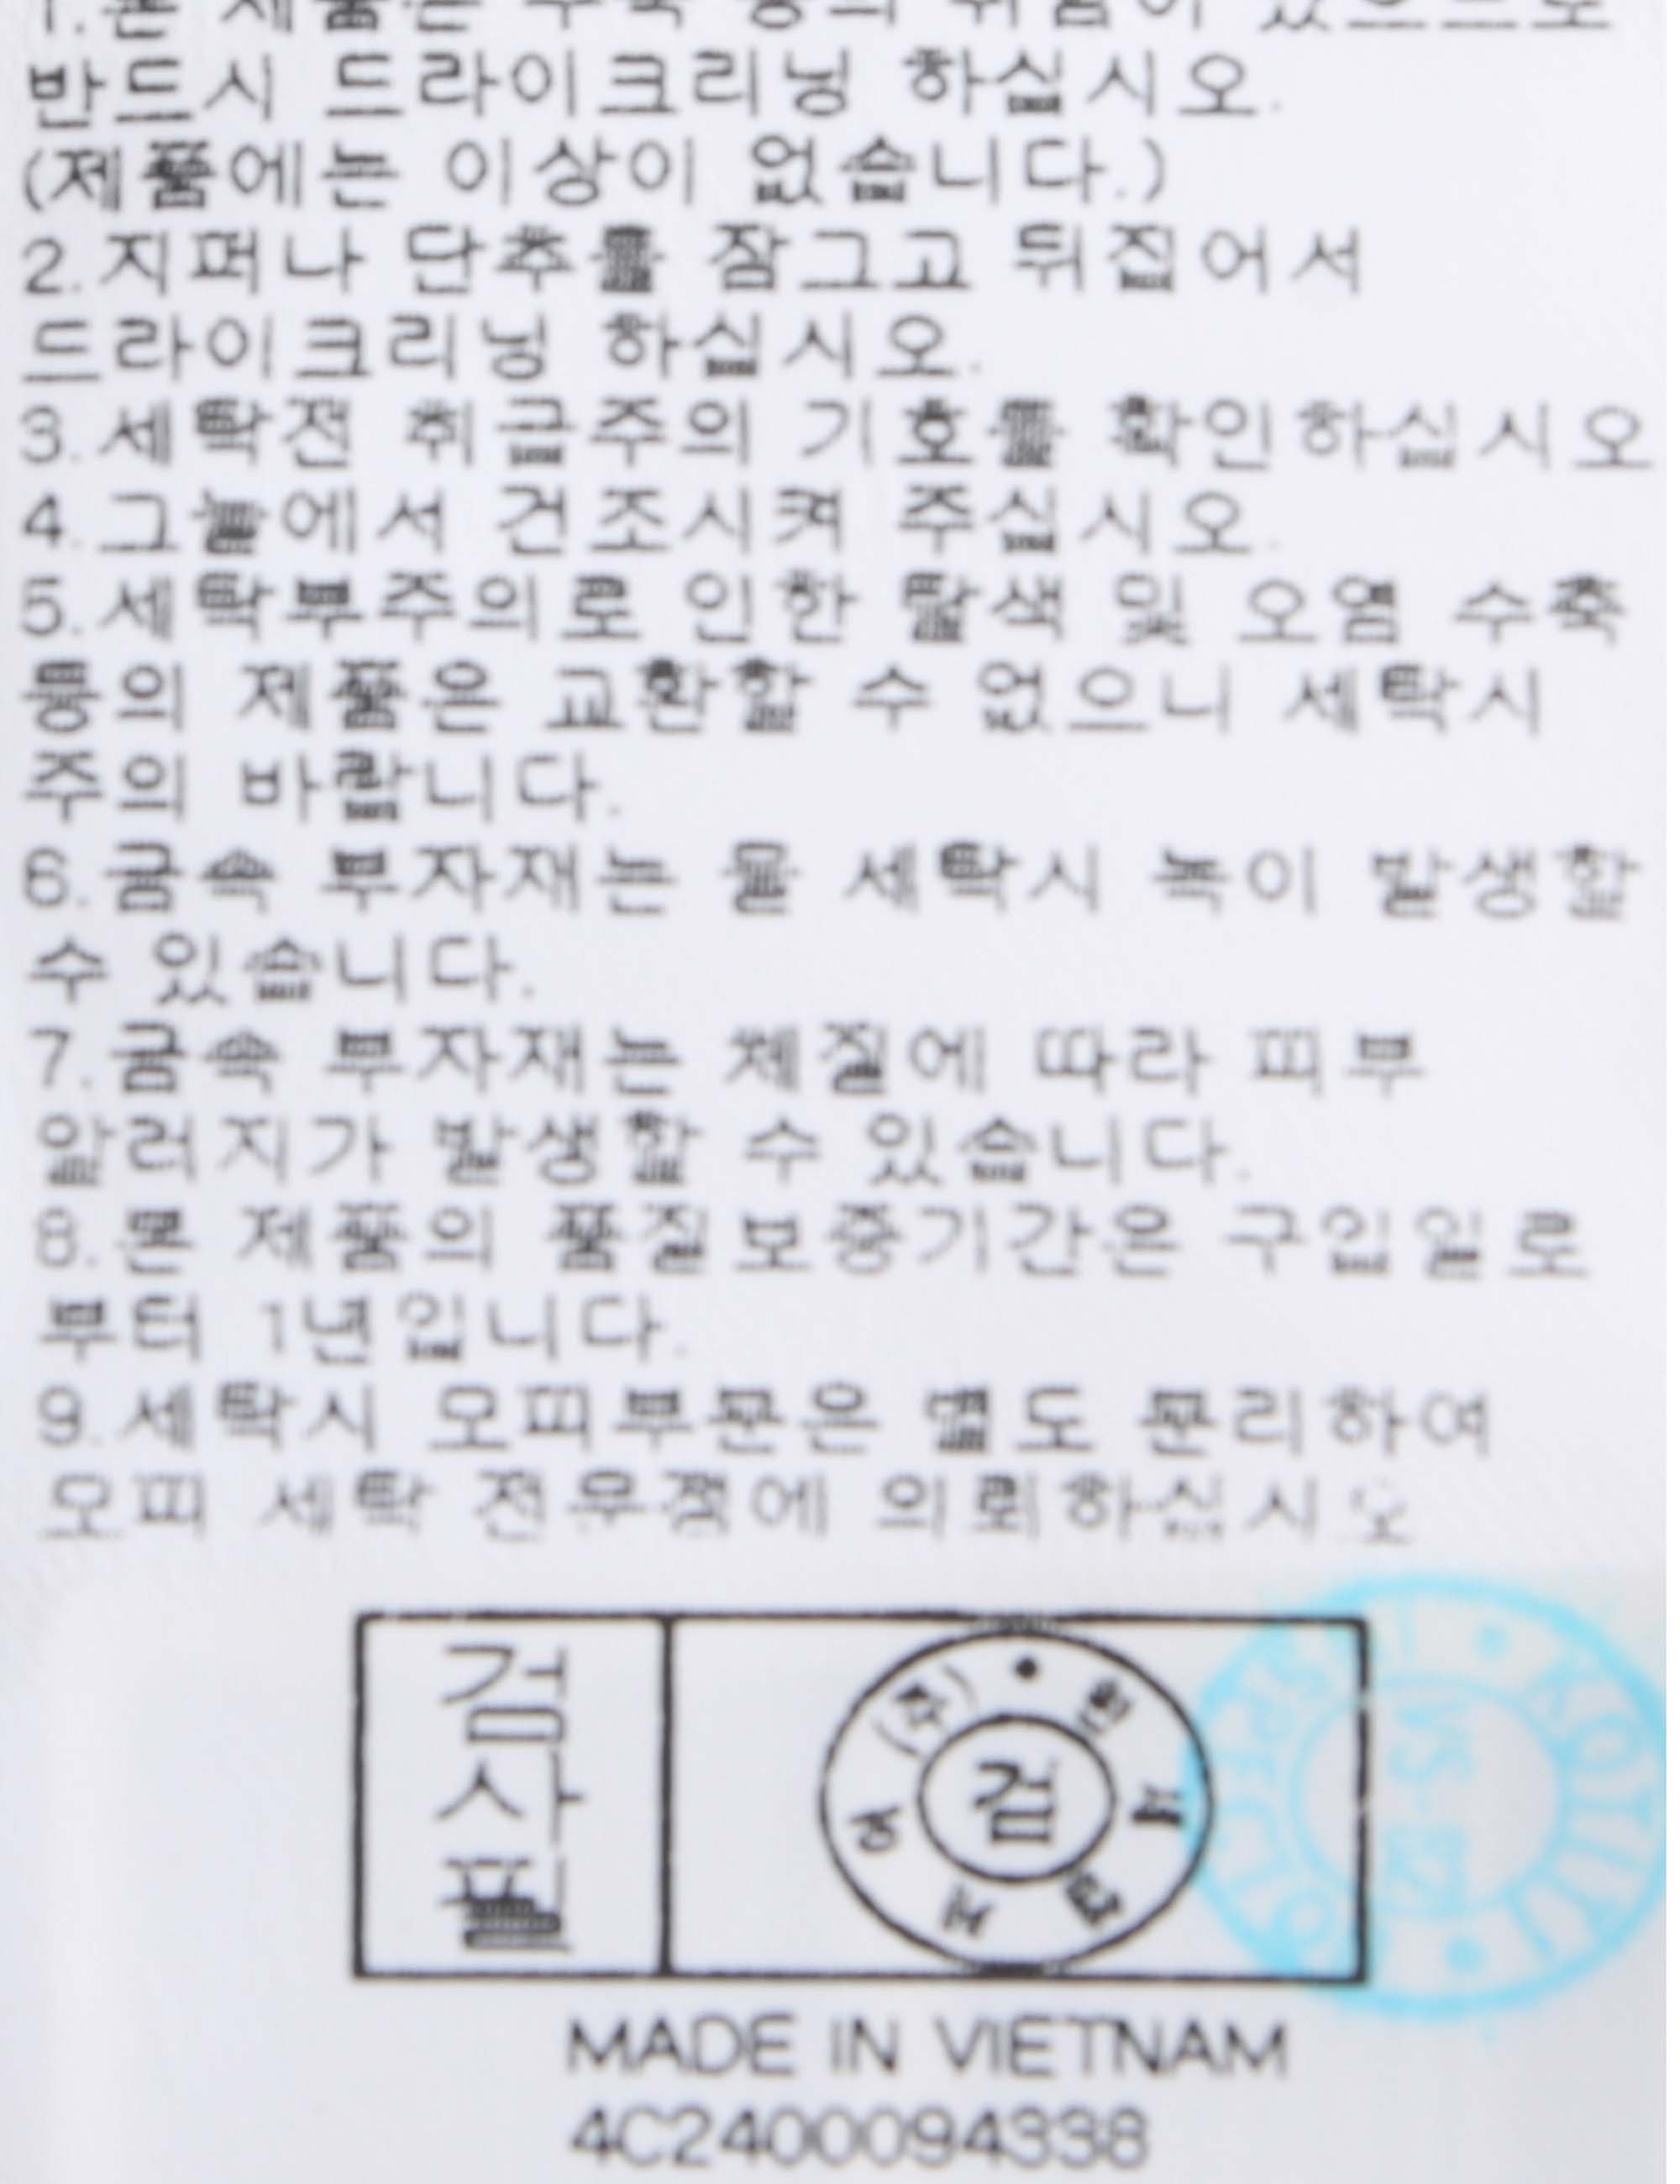 1.본 제품은 수축 등의 위험이 있으므로
반드시 드라이크리닝 하십시오.
(제품에는 이상이 없습니다.)
2.지퍼나 단추를 잠그고 뒤집어서
드라이크리닝 하십시오.
3.세탁전 취급주의 기호를 확인하십시오
4.그늘에서 건조시켜 주십시오.
5.세탁부주의로 인한 탈색 및 오염 수축
등의 제품은 교환할 수 없으니 세탁시
주의 바랍니다.
6.금속 부자재는 물 세탁시 녹이 발생할
수 있습니다.
7.금속 부자재는 체질에 따라 피부
알러지가 발생할 수 있습니다.
8.본 제품의 품질보증기간은 구입일로
부터 1년입니다.
9.세탁시 모피부분은 별도 분리하여
모피 세탁 전문점에 의뢰하십시오
검사필
(주)
검
MADE IN VIETNAM
4C2400094338